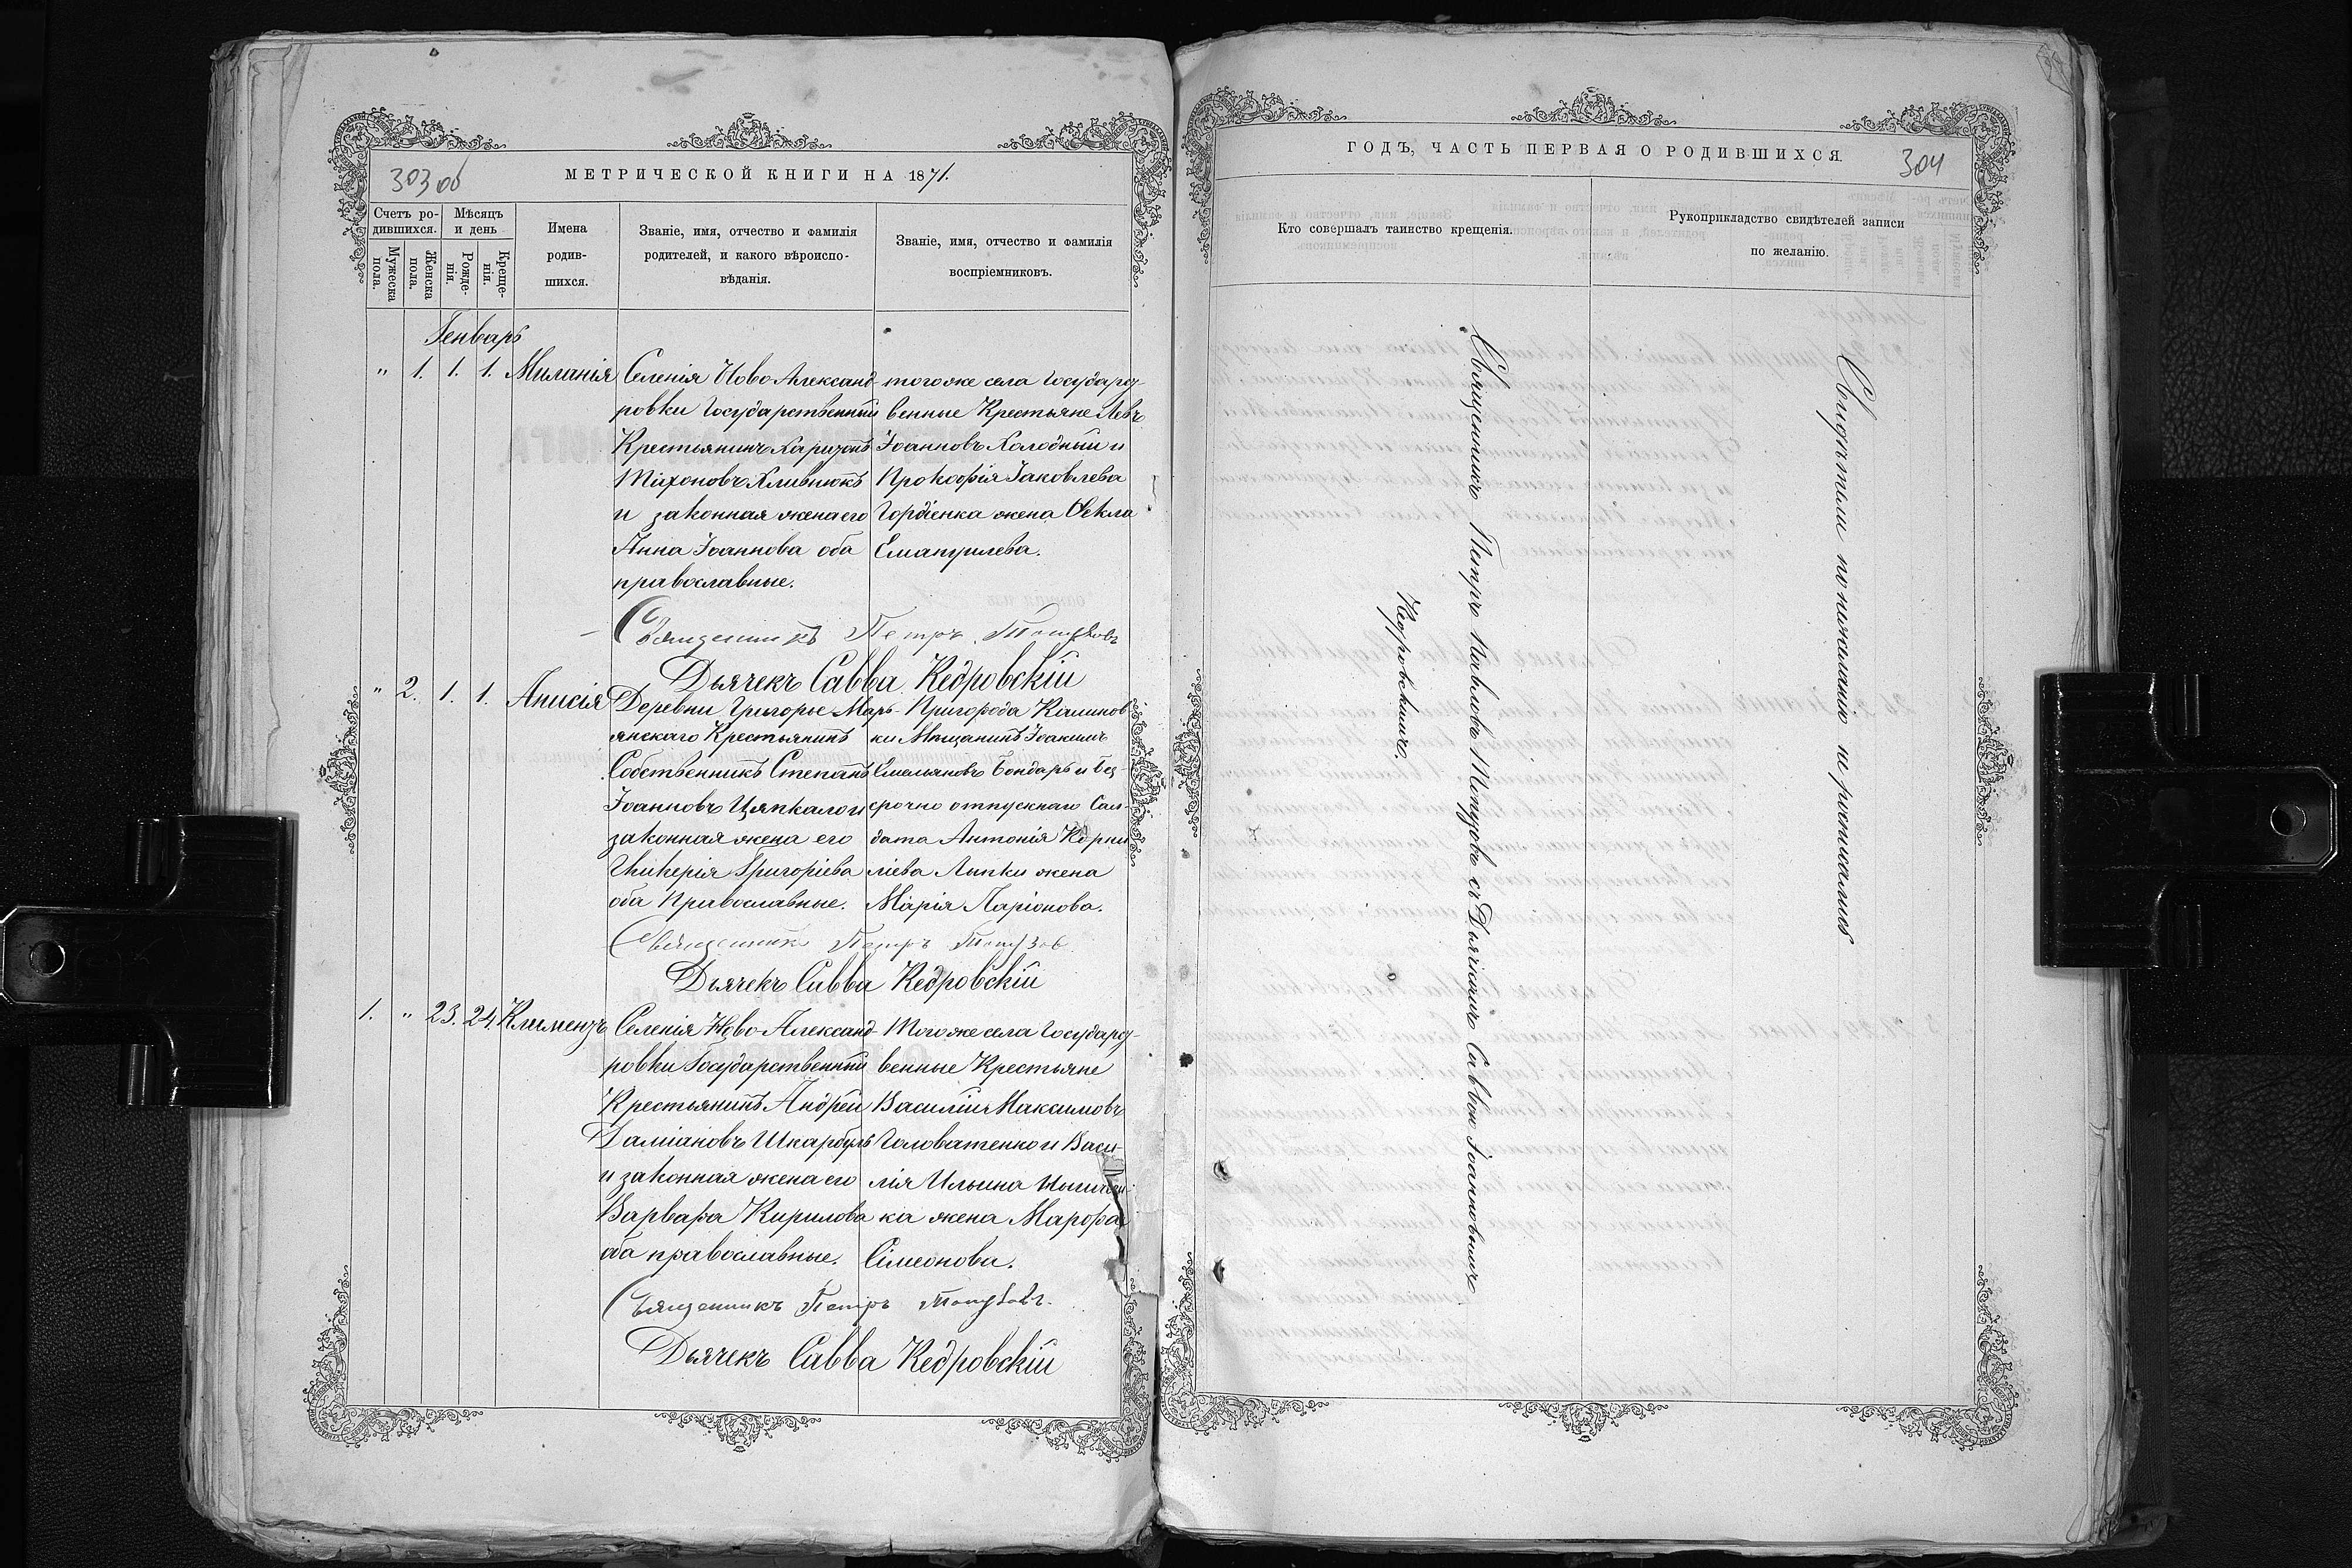 303 об
МЕТРИЧЕСКОЙ КНИГИ НА 1871.
Счетъ ро-
дившихся.
Мужеска пола.
Женска пола.
Мѣсяцъ
и день
Рожде-
нія.
Креще-
нія.
Имена
родив-
шихся.
Званіе, имя, отчество и фамилія
родителей, и какого вѣроиспо-
вѣданія.
Званіе, имя, отчество и фамилія
воспріемниковъ.
Генварь
" 1. 1. 1. Миланія
Селенія Ново Александ-
ровки Государственный
Крестьянинъ Харитонъ
Тихоновъ Хливнюкъ
и законная жена его
Анна Іоаннова оба
православные.
того же села Государс-
венные Крестьяне Левъ
Іоанновъ Холодный и
Прокофія Іаковлева
Гордіенка жена Фекла
Емануилева.
Священникъ Петръ
Дьячекъ Савва Кедровскій
" 2. 1. 1. Анисія
Деревни Григорье Марь-
янскаго Крестьянинъ
Собственникъ Степанъ
Іоанновъ Цяпкало и
законная жена его
Гликерія Григоріева
оба Православные.
Пригорода Калинов
ки Мѣщанинъ Іоакимъ
Емельяновъ Бондарь и Без
срочно отпускнаго Сол-
дата Антонія Корни
ліева Липки жена
Марія Ларіонова.
Священникъ Петръ
Дьячекъ Савва Кедровскій
1. " 23. 24. Климентъ
Селенія Ново-Александ-
ровки Государственный
Крестьянинъ Андрей
Даміановъ Шкарбуль
и законная жена его
Варвара Кирилова
оба православные.
Того же села Государс-
венные Крестьяне
Василій Максимовъ
Головатенко и Васи-
лія Ильина
ка жена Марфа
Сімеонова.
Священникъ Петръ
Дьячекъ Савва Кедровскій
ГОДЪ, ЧАСТЬ ПЕРВАЯ О РОДИВШИХСЯ.
304
Кто совершалъ таинство крещенія.
Рукоприкладство свидѣтелей записи
по желанію.
Священникъ Петръ Павловъ съ Дьячкомъ Саввою Іоанновымъ
Кедровскимъ.
Свидѣтели по нежеланію не росписались